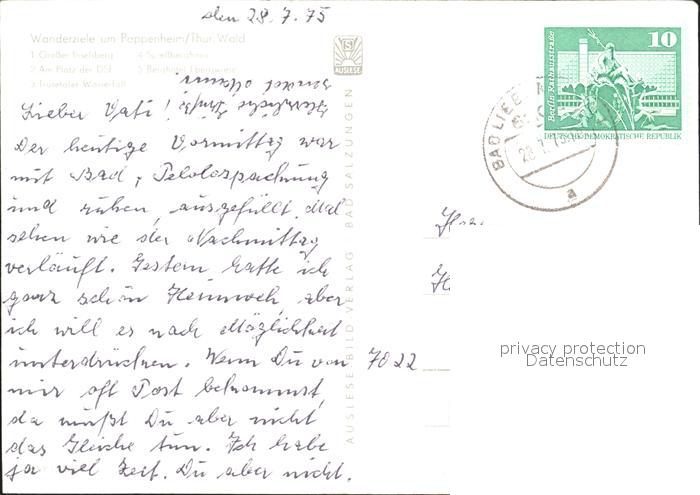 den 28.7.75
Wanderziele um Pappenheim/Thür. Wald
1 Großer Inselsberg 4 Spießberghaus
2 Am Platz der DSF 5 Berghotel Ebertswiese
3 Trusetaler Wasserfall
AUSLESE
Herzliche Grüße!
sendet
Lieber Vati!
Der heutige Vormittag war
mit Bad, Peloidspachung
und ruhen, ausgefüllt. Mal
sehen wie der Nachmittag
verläuft. Gestern hatte ich
ganz schön Heimweh, aber
ich will es nach Möglichkeit
unterdrücken. Wenn Du von
mir oft Post bekommst,
da mußt Du aber nicht
das Gleiche tun. Ich habe
ja viel Zeit. Du aber nicht.
AUSLESE-BILD-VERLAG BAD SALZUNGEN
10
Berlin-Rathausstraße
DEUTSCHE DEMOKRATISCHE REPUBLIK
BAD LIEBE
28.7.75
a
7022
privacy protection
Datenschutz